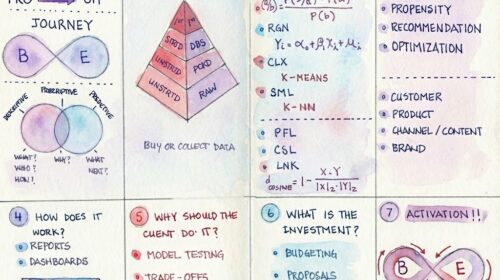 JOURNEY
B E
DESCRIPTIVE
PRESCRIPTIVE
PREDICTIVE
WHAT?
WHO?
HOW?
WHY?
WHAT
NEXT?
STRTD DBS
UNSTRTD PCKD
UNSTRTD RAW
BUY OR COLLECT DATA
P(b)
RGN
Yi = α0 + βiXi + μi
CLX
K-MEANS
SML
K-NN
PFL
CSL
LNK
d cosine = 1 - X.Y / |X|2.|Y|2
PROPENSITY
RECOMMENDATION
OPTIMIZATION
CUSTOMER
PRODUCT
CHANNEL / CONTENT
BRAND
4 HOW DOES IT
WORK?
REPORTS
DASHBOARDS
5 WHY SHOULD THE
CLIENT DO IT?
MODEL TESTING
TRADE-OFFS
6 WHAT IS THE
INVESTMENT?
BUDGETING
PROPOSALS
7 ACTIVATION!!
B E